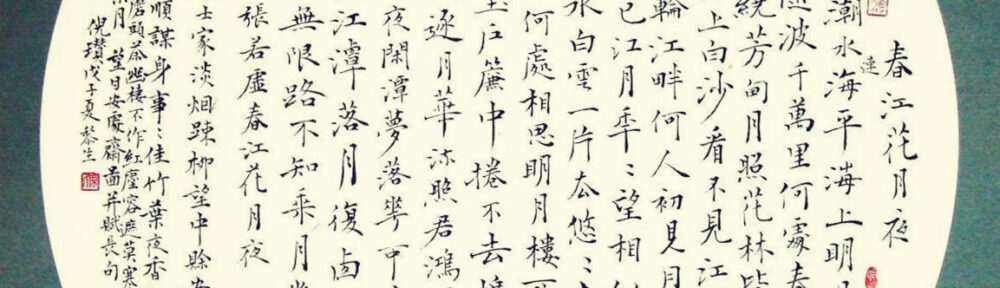 春江花月夜
潮水連海平海上明
隨波千萬里何處春
繞芳甸月照花林皆
上白沙看不見江
輪江畔何人初見月
已江月年〻望相
水白雲一片去悠〻
何處相思明月樓可
玉戶簾中捲不去
逐月華流照君鴻
夜閑潭夢落花可
江潭落月復西
無限路不知乘月
張若虛春江花月夜
士家淡烟踈柳望中賒
順謀身事〻佳竹葉夜香
頭幽棲不作紅塵容遮莫寒
月望日安處齋圖并賦長句
倪瓚戊子夏黎生